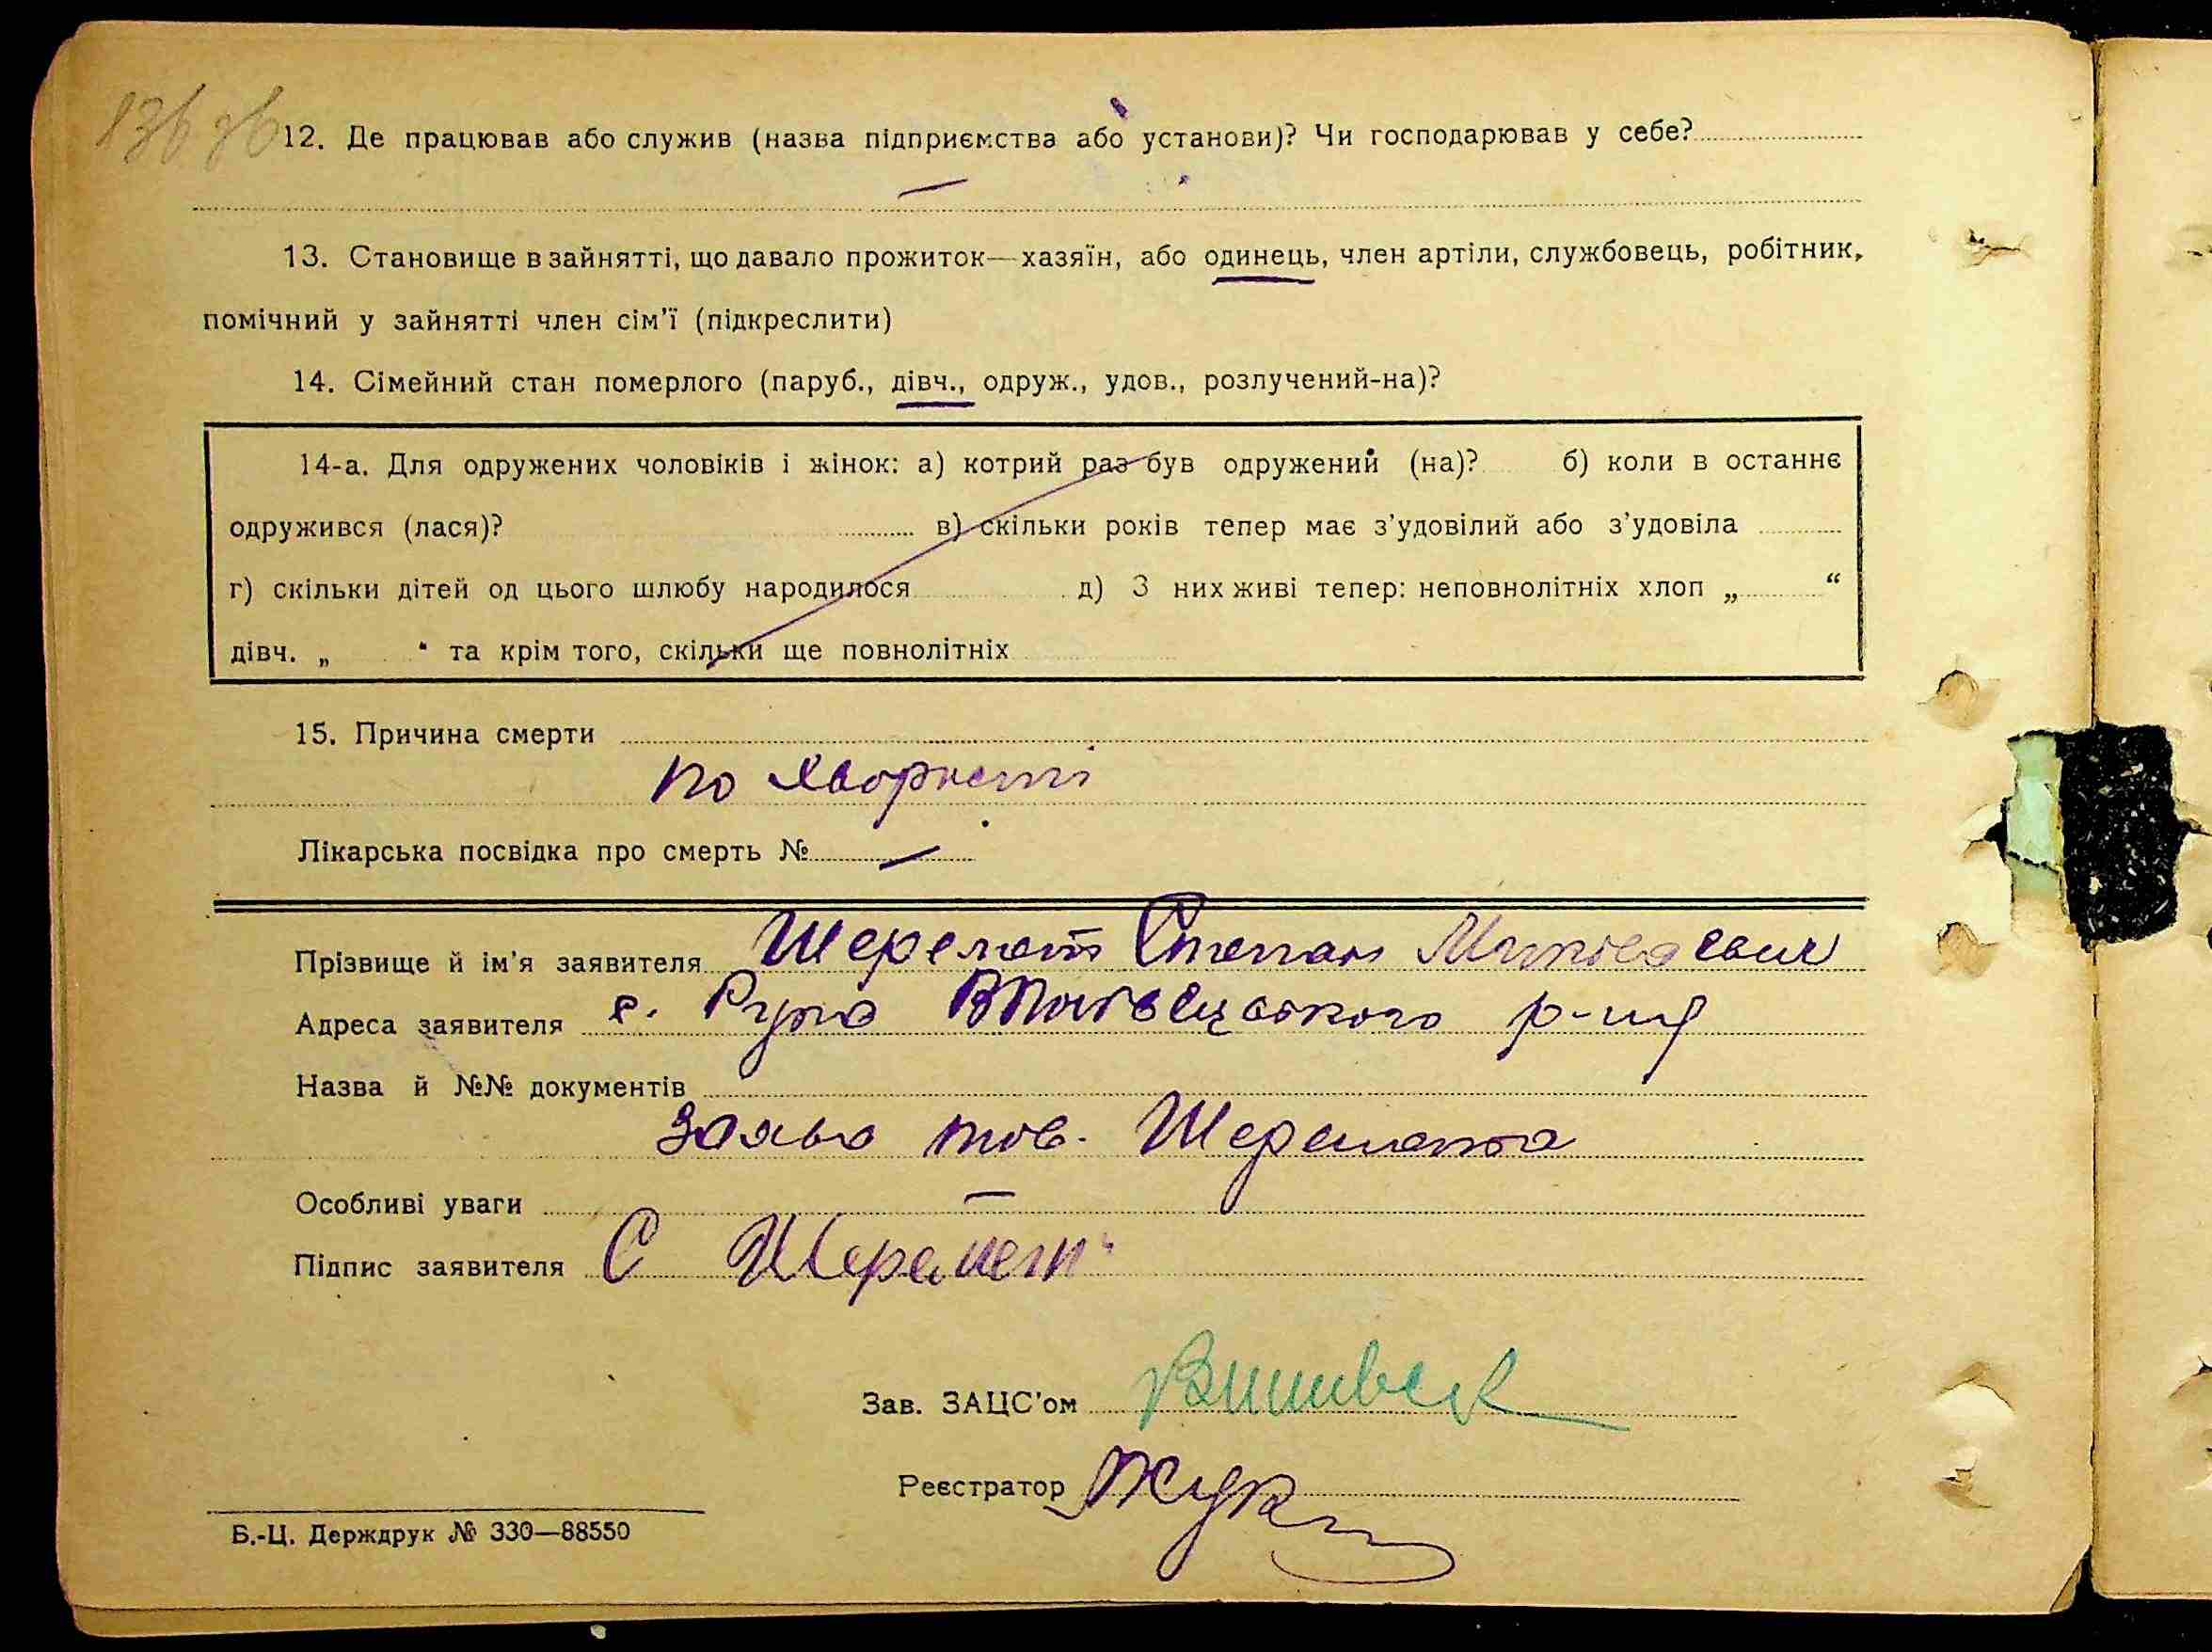 136 зв
12. Де працював або служив (назва підприємства або установи)? Чи господарював у себе?
—
13. Становище в зайнятті, що давало прожиток—хазяїн, або одинець, член артіли, службовець, робітник,
помічний у зайнятті член сім’ї (підкреслити)
14. Сімейний стан померлого (паруб., дівч., одруж., удов., розлучений-на)?
14-а. Для одружених чоловіків і жінок: а) котрий раз був одружений (на)? б) коли в останнє
одружився (лася)? в) скільки років тепер має з’удовілий або з’удовіла
г) скільки дітей од цього шлюбу народилося д) З них живі тепер: неповнолітніх хлоп „ “
дівч. „ “ та крім того, скільки ще повнолітніх
15. Причина смерти
по хворости
Лікарська посвідка про смерть № —
Прізвище й ім’я заявителя Шеремет Степан
Адреса заявителя с. р-ну
Назва й №№ документів
Заява тов. Шеремета
Особливі уваги —
Підпис заявителя С Шеремет
Зав. ЗАЦС’ом
Реєстратор Жук
Б.-Ц. Держдрук № 330—88550